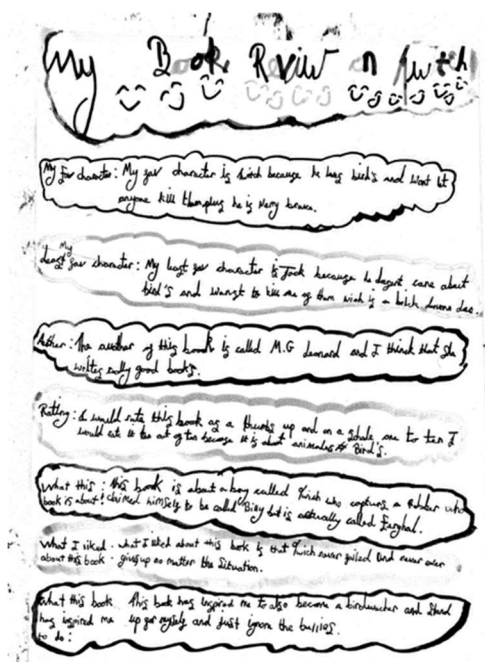 My Book Reviw on
My fav character: My fav character is twich because he lovs bird's and wont let
anyone kill them plus he is very brave.
My
least fav character: My least fav character is Jack because he dosent care about
bird's and wanst to kill one of them wich is a
Auther: The auther of this book is called M.G leonard and I think that she
writes really good books.
Rating: I would rate this book as a thumbs up and on a schale one to ten I
would rate it ten out of ten because it is about animales Bird's.
What this : this book is about a boy called twich who capturs a Robber who
book is about: claimed himself to be called Billy but is actually called
What I liked . what I liked about this book is that twich never failed and never ever
about this book . give up no matter the situation.
What this book this book has inspired me to also become a birdwacher and stand
has inspired me up for myself and just ignore the bullies.
to do: